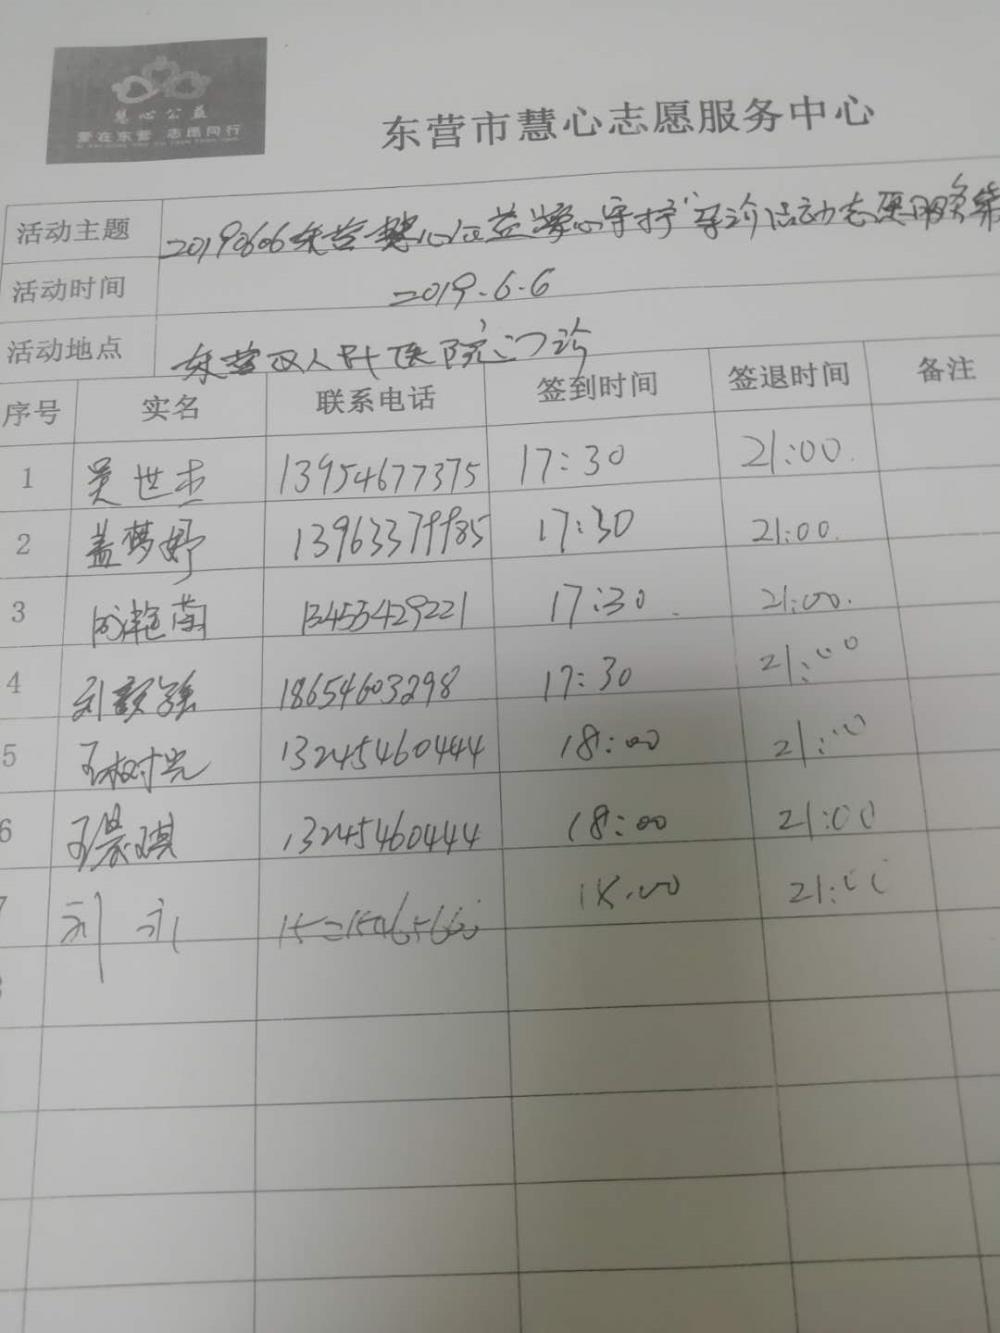 慧心公益
爱在东营 志愿同行
东营市慧心志愿服务中心
活动主题 20190606东营慧心公益"掌心守护"导诊活动志愿服务
活动时间 2019.6.6
活动地点 东营区人民医院门诊
序号 实名 联系电话 签到时间 签退时间 备注
1 吴世杰 13954677375 17:30 21:00
2 盖梦妤 13963379985 17:30 21:00
3 13453429221 17:30 21:00
4 18654603298 17:30 21:00
5 王树光 13245460444 18:00 21:00
6 王晨琪 13245460444 18:00 21:00
7 18:00 21:00